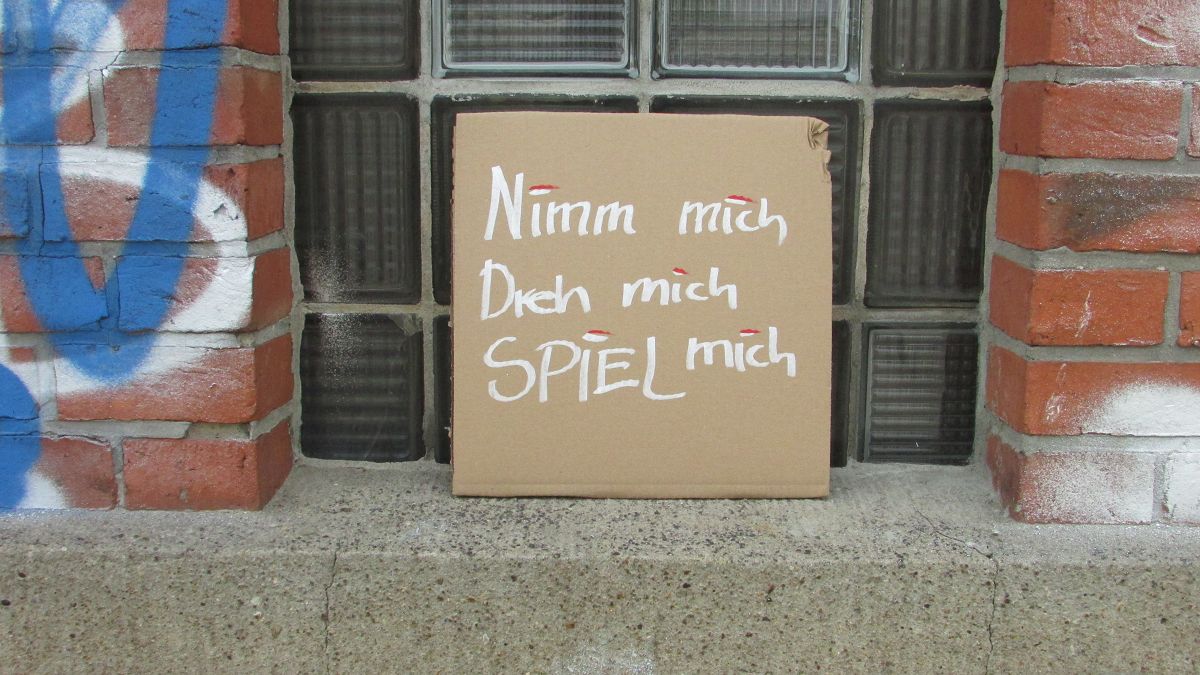 Nimm mich
Dreh mich
SPiEL mich